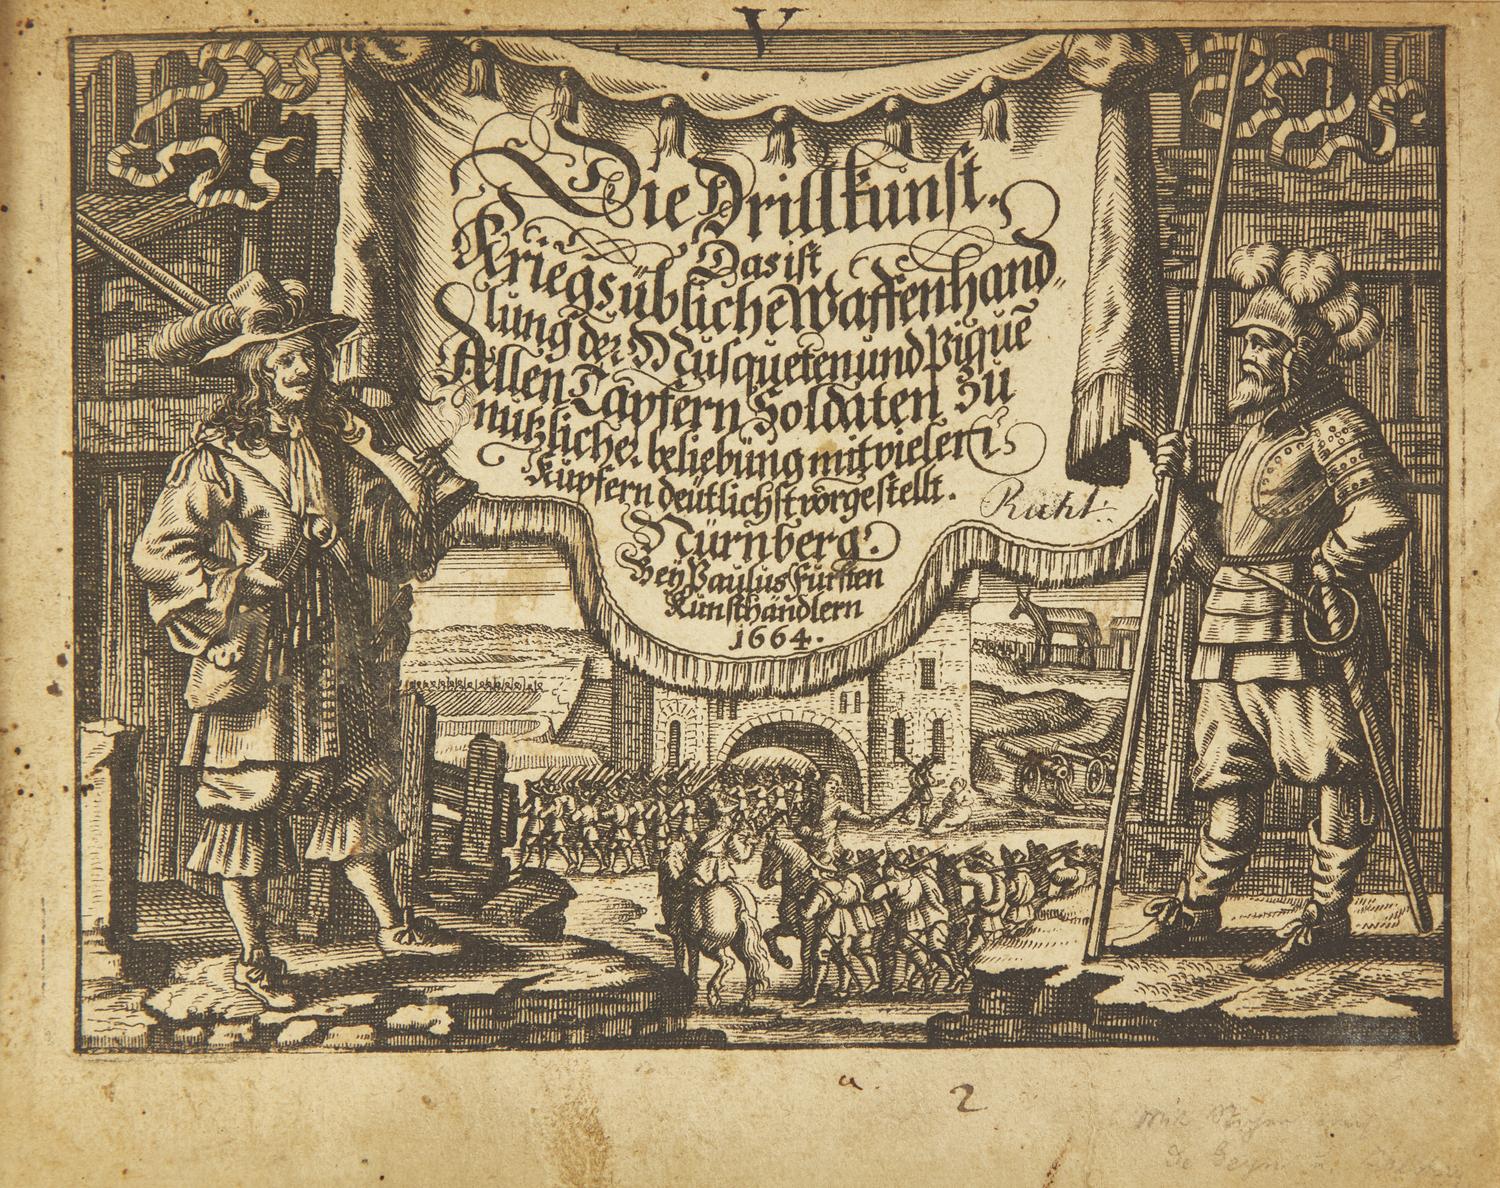 V
Die Drillkunst.
Das ist
Kriegsübliche Waffenhand„
lung der Musqueten und Piquē
Allen Tapfern Soldaten zu
nutzlicher beliebūng mit vielen
Kupfern deütlichst vorgestellt.
Nürnberg.
Beÿ Paulus Fürsten
Kunsthändlern
1664.
a.
2